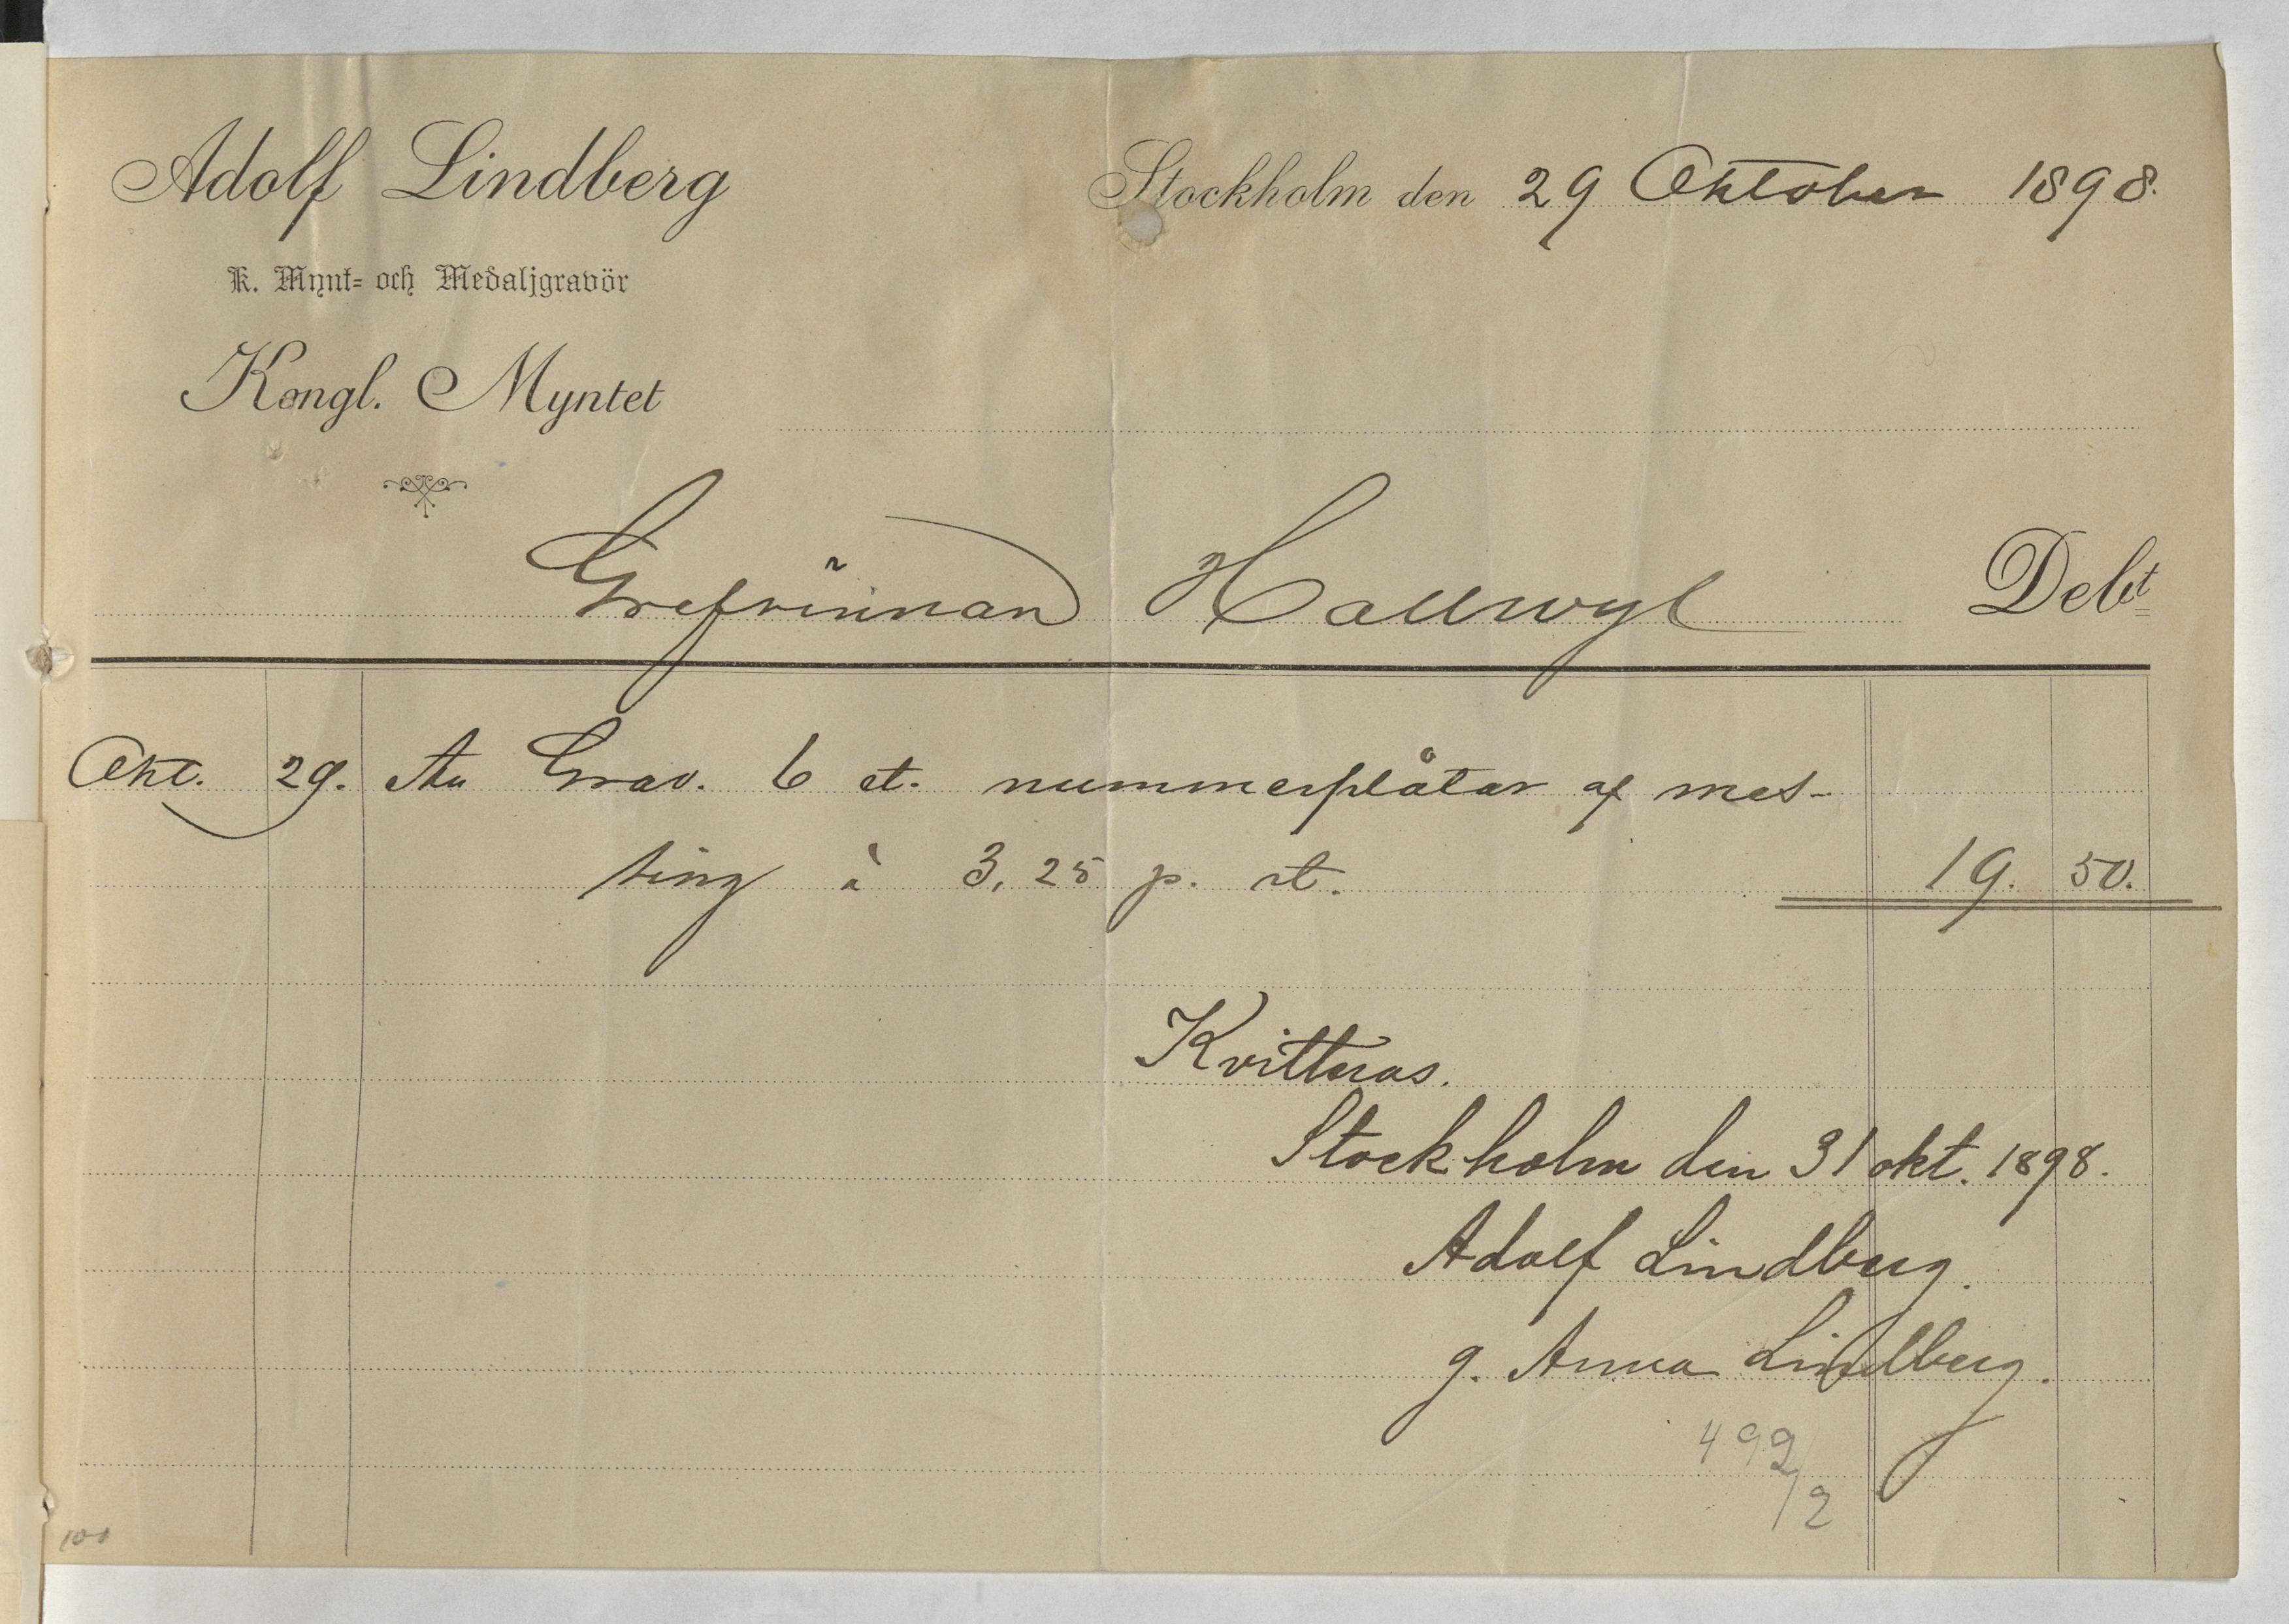 Adolf Lindberg
Stockholm den 29 Oktober 1898.
K. Mynt- och Medaljgravör
Kongl. Myntet
Grefvinnan Hallwyl Debt
Okt. 29. An Grav. 6 st. nummerplåtar af mes-
sing à 3,25 p. st. 19. 50.
Kvitteras.
Stockholm den 31 okt. 1898.
Adolf Lindberg.
g. Anna Lindberg.
492/2
100